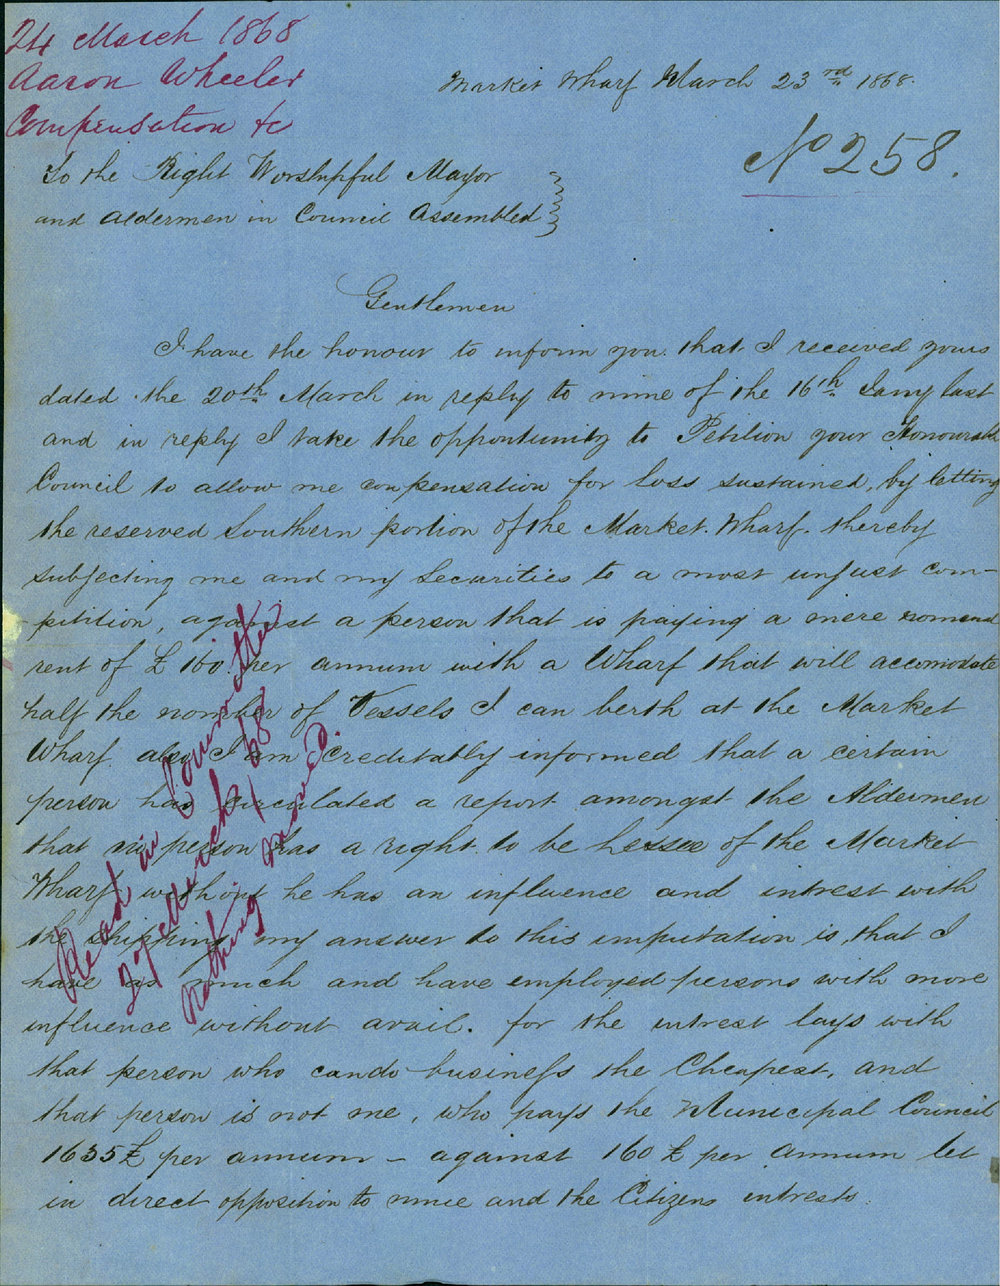 24 March 1868
Aaron Wheeler
Compensation &c
Market Wharf March 23rd 1868.
No 258.
To the Right Worshipful Mayor
and Aldermen in Council Assembled
Gentlemen
I have the honour to inform you that I received yours
dated the 20th March in reply to mine of the 16th Jany last
and in reply I take the opportunity to Petition your Honourable
Council to allow me conpensation for loss sustained, by letting
the reserved Southern portion of the Market Wharf. thereby
subjecting me and my Securities to a most unjust com-
-petition, against a person that is paying a mere
rent of £160 per annum with a Wharf that will accomodate
half the number of Vessels I can berth at the Market
Wharf. also I am creditably informed that a certain
person has circulated a report amongst the Aldermen
that no person has a right to be Lessee of the Market
Wharf without he has an influence and intrest with
the shipping my answer to this imputation is, that I
have as much and have employed persons with more
influence without avail. for the intrest lays with
that person who can do business the Cheapest, and
that person is not me, who pays the Municipal Council
1635£ per annum – against 160£ per annum let
in direct opposition to mine and the Citizens intrests.
Read in Committee
27 March /68
nothing moved.